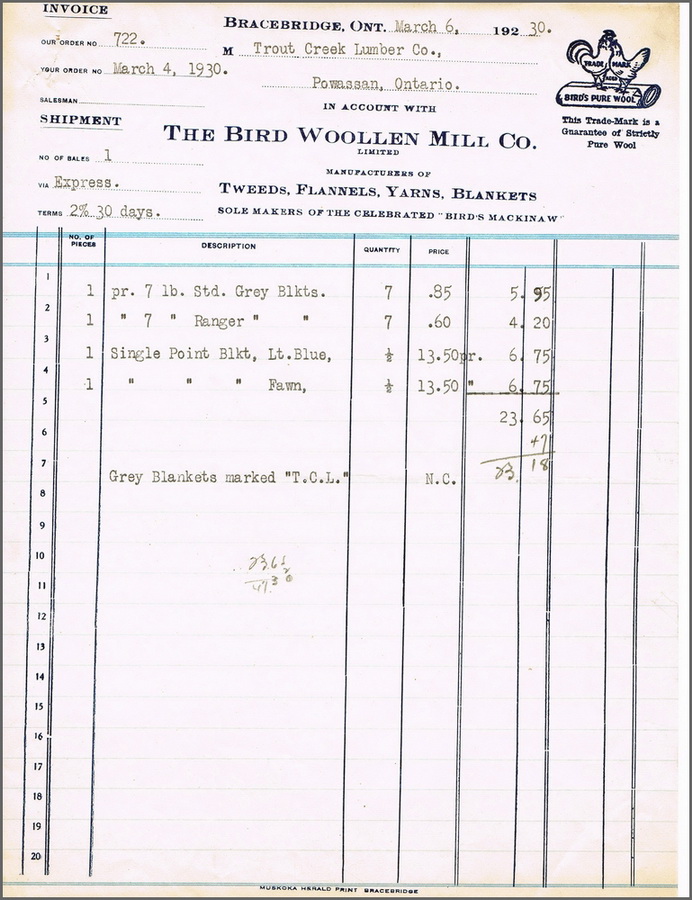 INVOICE
BRACEBRIDGE, ONT. March 6, 192 30.
OUR ORDER NO 722.
M Trout Creek Lumber Co.,
YOUR ORDER NO March 4, 1930.
Powassan, Ontario.
SALESMAN
IN ACCOUNT WITH
TRADE MARK
BIRD'S PURE WOOL
This Trade-Mark is a
Guarantee of Strictly
Pure Wool
SHIPMENT
THE BIRD WOOLLEN MILL CO.
LIMITED
NO OF BALES 1
MANUFACTURERS OF
VIA Express.
TWEEDS, FLANNELS, YARNS, BLANKETS
TERMS 2% 30 days.
SOLE MAKERS OF THE CELEBRATED "BIRD'S MACKINAW"
NO. OF PIECES DESCRIPTION QUANTITY PRICE
1
1 pr. 7 lb. Std. Grey Blkts. 7 .85 5. 95
2
1 " 7 " Ranger " " 7 .60 4. 20
3
1 Single Point Blkt, Lt.Blue, ½ 13.50pr. 6. 75
4
1 " " " Fawn, ½ 13.50 " 6. 75
5
23. 65
6
47
7
23. 18
Grey Blankets marked "T.C.L." N.C.
8
9
10
2365
2
11
12
13
14
15
16
17
18
19
20
MUSKOKA HERALD PRINT BRACEBRIDGE